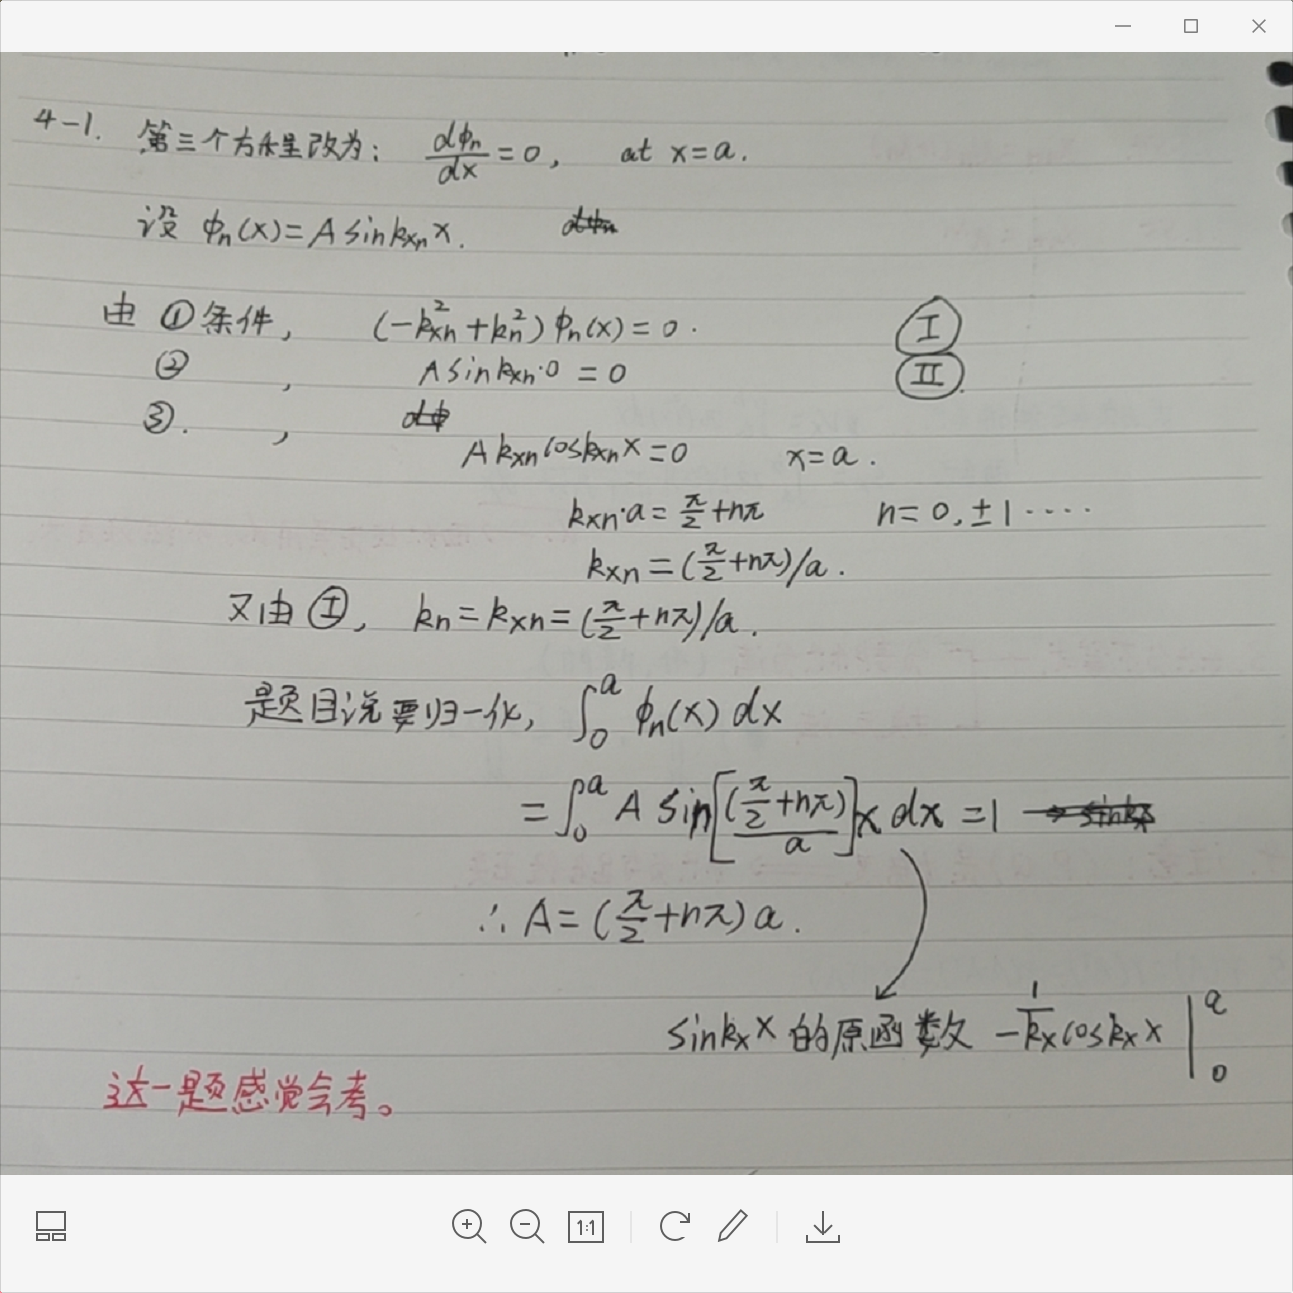 4-1. 第三个方程改为: dϕn/dx = 0, at x=a.
设 ϕn(x)=A sinkxn x.
由 ①条件, (-kxn²+kn²) ϕn(x)=0. Ⅰ
② , A sinkxn·0 = 0 Ⅱ.
③. ,
A kxn coskxn x = 0 x=a.
kxn·a = π/2+nπ n=0,±1····
kxn = (π/2+nπ)/a.
又由 Ⅰ, kn = kxn = (π/2+nπ)/a.
题目说要归一化, ∫₀ᵃ ϕn(x) dx
= ∫₀ᵃ A sin[(π/2+nπ)/a]x dx = 1
∴ A = (π/2+nπ) a.
sinkx x 的原函数 -1/kx coskx x |₀ᵃ
这一题感觉会考。
1:1